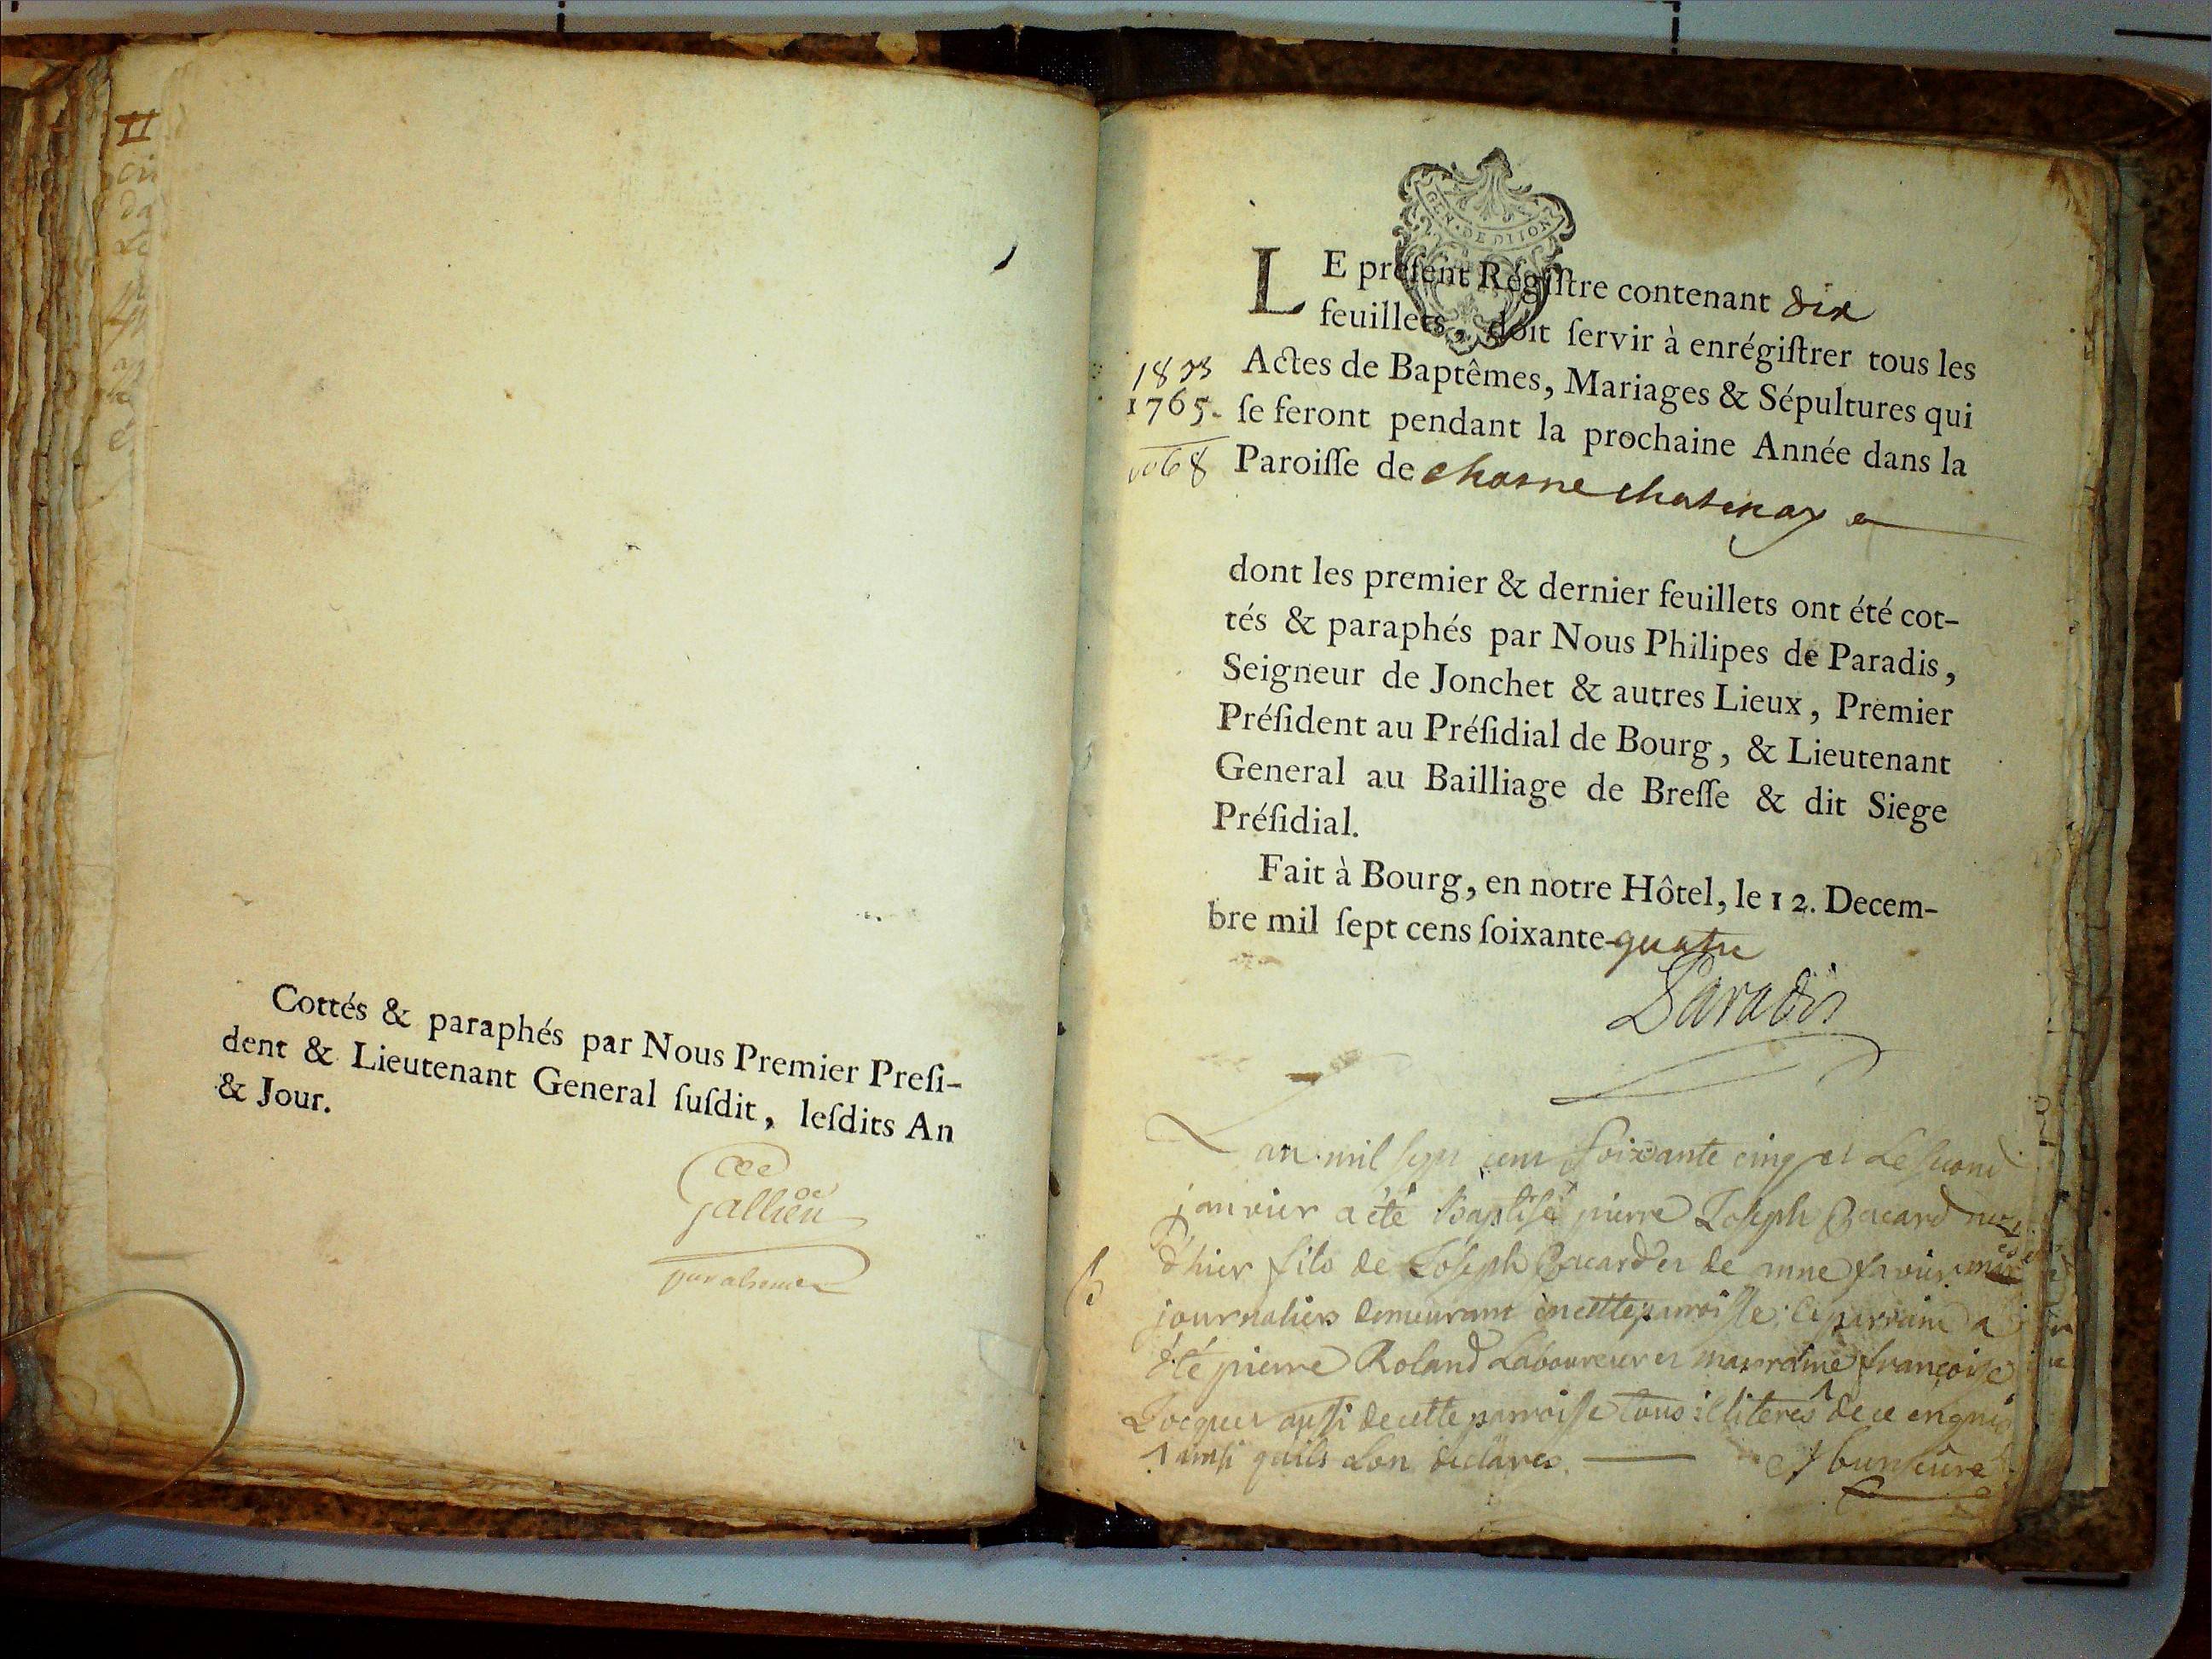 Cottés & paraphés par Nous Premier Preſi-
dent & Lieutenant General ſuſdit, leſdits An
& Jour.
GEN. DE DIJON
LE préſent Régiſtre contenant dix
feuillets, doit ſervir à enrégiſtrer tous les
Actes de Baptêmes, Mariages & Sépultures qui
1765. ſe feront pendant la prochaine Année dans la
Paroiſſe de chatenay
dont les premier & dernier feuillets ont été cot-
tés & paraphés par Nous Philipes de Paradis,
Seigneur de Jonchet & autres Lieux, Premier
Préſident au Préſidial de Bourg, & Lieutenant
General au Bailliage de Breſſe & dit Siege
Préſidial.
Fait à Bourg, en notre Hôtel, le 12. Decem-
bre mil ſept cens ſoixante-quatre
Paradis
L'an mil sept cent soixante cinq et le second
janvier a été baptisé pierre Joseph
d'hier fils de Joseph et de
journaliers demeurant en cette parroisse; le parrain a
été pierre Roland Laboureur et marraine françoise
aussi de cette parroisse tous illiteres de ce enquis
ainsi quils l'on declares.